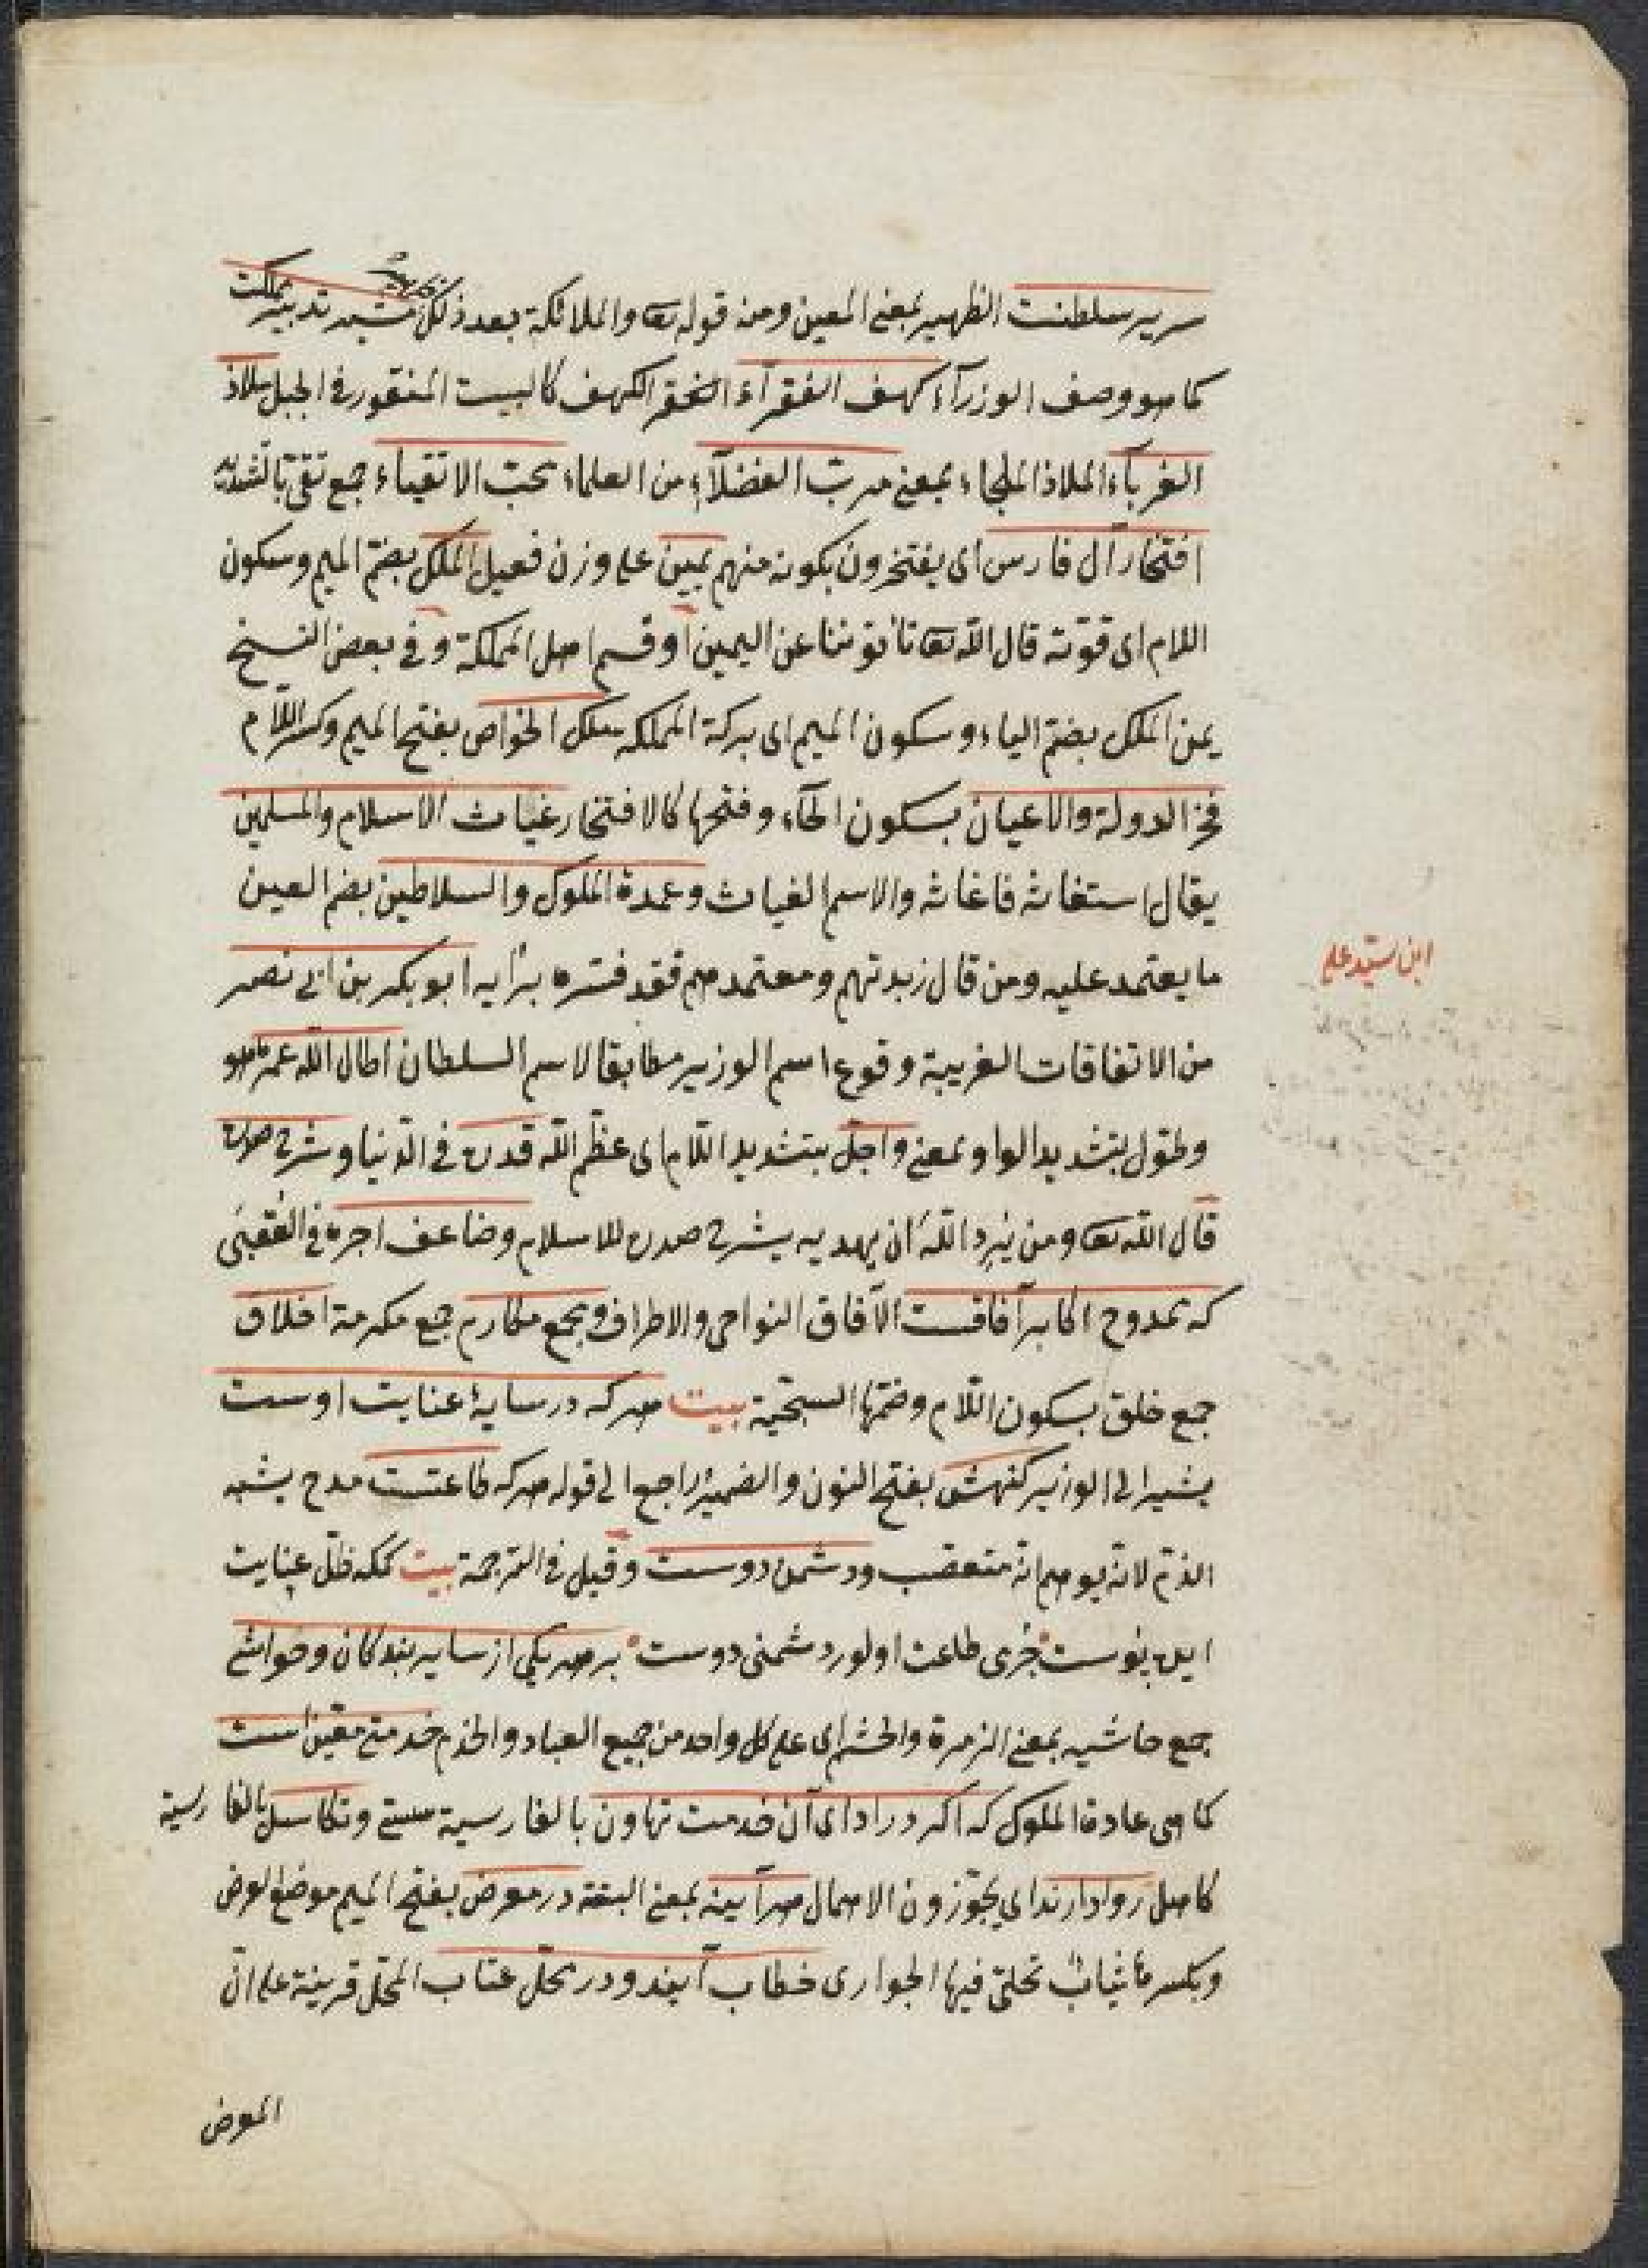 سرير سلطنت الظهير بمعنى المعين ومنه قوله تعا والملائكة بعد ذلك مشير تدبير مملكت
كما هو وصف الوزرآء كهف الفقرآء الكهف كالبيت المنقور في الجبل ملاذ
الغرباء الملاذ الملجاء بمعنى مربّ الفضلآء من العلماء محبّ الاتقياء جمع تقى بالتشديد
افتخار آل فارس اى يفتخرون بكونه منهم يمين على وزن فعيل الملك بضمّ الميم وسكون
اللام اى قوّته قال الله تعا تأتوننا عن اليمين او قسم اهل المملكة وفي بعض النسخ
يمن الملك بضمّ الياء وسكون الميم اى بركة المملكه ملك الخواص بفتح الميم وكسر اللام
فخر الدولة والاعيان بسكون الخاء وفتحها كالافتخار غياث الاسلام والمسلمين
يقال استغاثه فاغاثه والاسم الغياث وعمدة الملوك والسلاطين بضم العين
ما يعتمد عليه ومن قال زبدتهم ومعتمدهم فقد فسّره برأيه ابو بكر بن ابى نصر
ابن سيّد على
من الاتفاقات الغريبة وقوع اسم الوزير مطابقا لاسم السلطان اطال الله عمره هو
وطوّل بتشديد الواو بمعنى واجلّ بتشديد اللام اى عظّم الله قدره في الدّنيا وشرح صدره
قال الله تعا ومن يُرِد اللهُ ان يهديه يشرح صدره للاسلام وضاعف اجره في العقبى
كه ممدوح اكابر آفاقست الآفاق النواحى والاطراف ومجمع مكارم جمع مكرمة اخلاق
جمع خلق بسكون اللام وضمّها السجيّة بيت هركه در سايۀ عنايت اوست
يشير الى الوزير كنهش بفتح النون والضمير راجع الى قوله هركه طاعتست مدح يشبه
الذمّ لانّه يوهم انّه متعصّب ودشمن دوست وقيل في الترجمة بيت كمكه ظلّ عنايت
ايله بوست جرمى طاعت اولور دشمنى دوست بر هر يكى از ساير بندكان وحواشى
جمع حاشيه بمعنى الزمرة والحشم اى على كل واحد من جميع العباد والخدم خدمتى معيّن است
كما هى عادة الملوك كه اكر در اداى آن خدمت تهاون بالفارسية سستى وتكاسل بالفارسية
كاهلى روا دارند اى يجوّزون الاهمال هرآيينه بمعنى البتة در معرض بفتح الميم موضع العرض
وبكسرها ثياب تحلّى فيها الجوارى خطاب آيند ودر محلّ عتاب المحلّ قرينة على انّ
المعرض